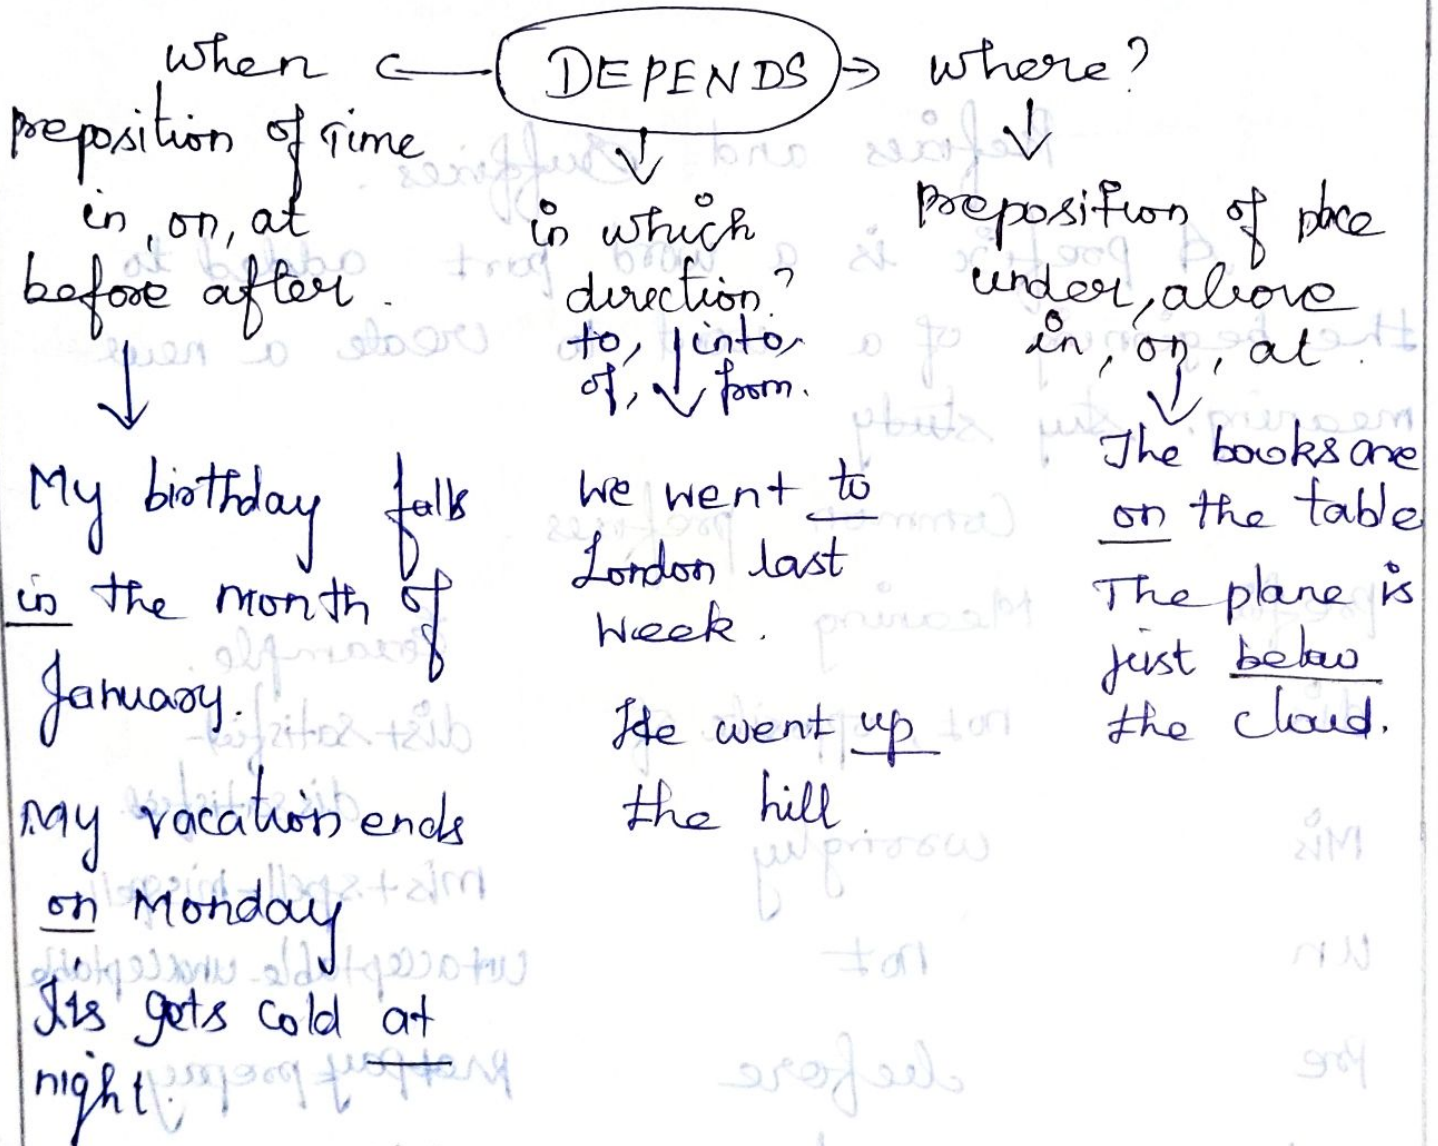 DEPENDS
when
preposition of Time
in, on, at
before after.
My birthday falls
in the month of
January.
My vacation ends
on Monday
Its gets cold at
night.
in which
direction?
to, into,
of, from.
We went to
London last
week.
He went up
the hill
where?
preposition of place
under, above
in, on, at.
The books are
on the table
The plane is
just below
the cloud.